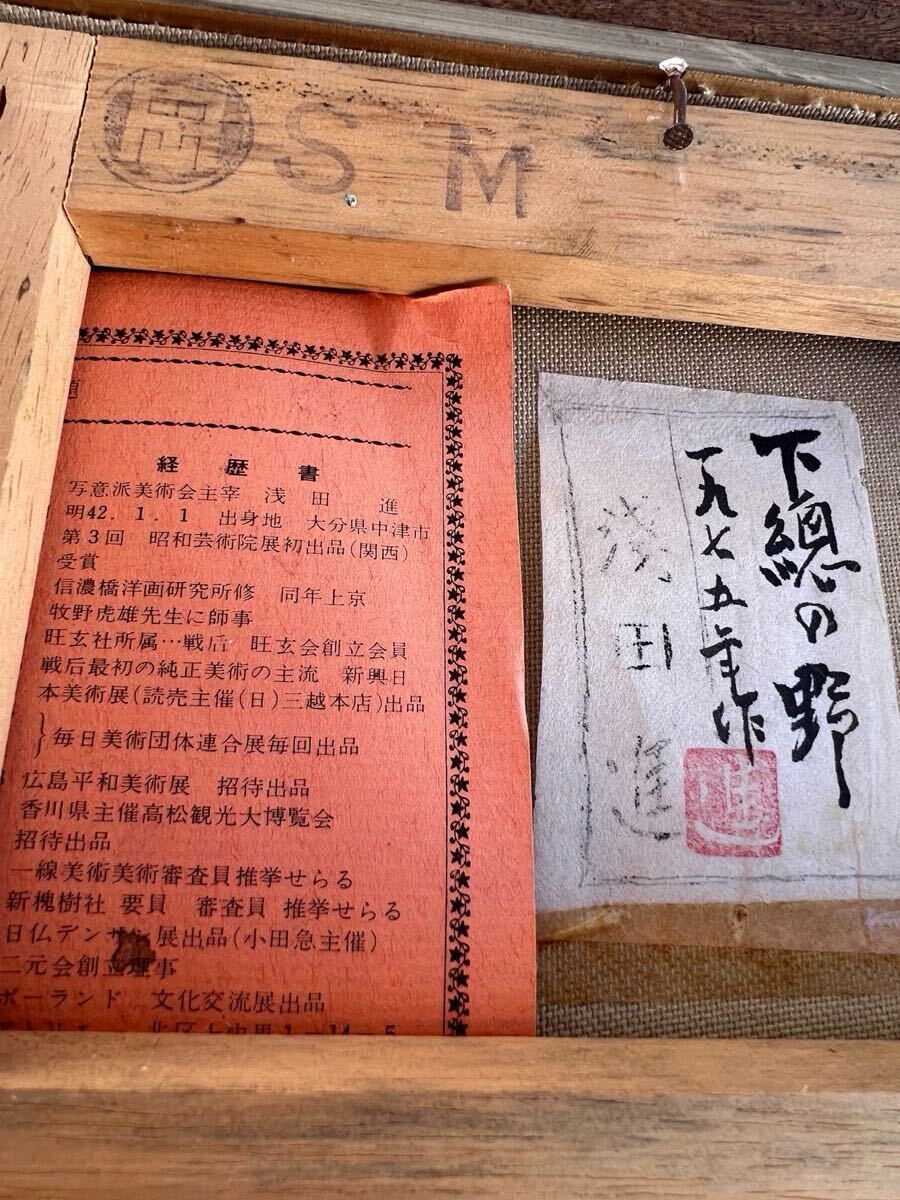 S M
題
経歴書
写意派美術会主宰 浅田 進
明42．1．1 出身地 大分県中津市
第3回 昭和芸術院展初出品(関西)
受賞
信濃橋洋画研究所修 同年上京
牧野虎雄先生に師事
旺玄社所属…戦后 旺玄会創立会員
戦后最初の純正美術の主流 新興日
本美術展(読売主催(日)三越本店)出品
}毎日美術団体連合展毎回出品
広島平和美術展 招待出品
香川県主催高松観光大博覧会
招待出品
一線美術美術審査員推挙せらる
新槐樹社 要員 審査員 推挙せらる
日仏デンサン展出品(小田急主催)
二元会創立理事
ポーランド 文化交流展出品
下總の野
一九七五年作
浅田進
進